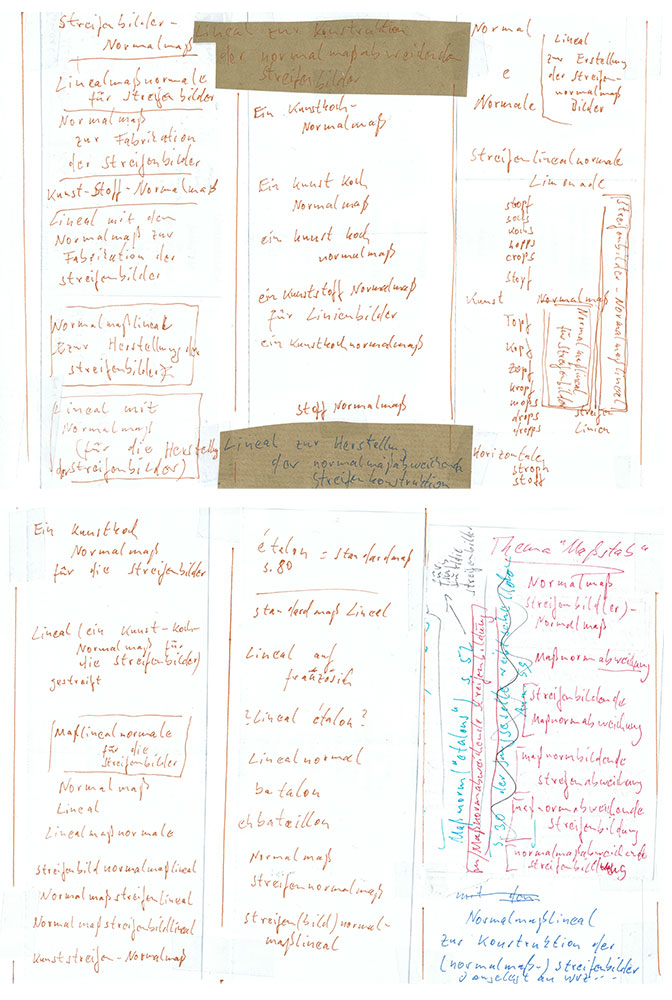 Streifenbilder-
Normalmaß
Linealmaßnormale
für Streifenbilder
Normalmaß
zur Fabrikation
der Streifenbilder
Kunst-Stoff-Normalmaß
Lineal mit dem
Normalmaß zur
Fabrikation der
Streifenbilder
Normalmaßlineal
zur Herstellung der
Streifenbilder
Lineal mit
Normalmaß
(für die Herstellung
der Streifenbilder)
Lineal zur Konstruktion
der normalmaßabweichenden
Streifenbilder
Ein Kunstkoch-
Normalmaß
Ein Kunst Koch
Normalmaß
ein Kunst koch
normalmaß
ein Kunststoff Normalmaß
für Linienbilder
ein Kunstkochnormalmaß
Stoff Normalmaß
Lineal zur Herstellung
der normalmaßabweichenden
Streifenkonstruktion
Normal
e
Normale
Lineal
zur Erstellung
der Streifen-
normalmaß
Bilder
Streifenlinealnormale
Limonade
stopf
kochs
hopps
crops
Stoff
Kunst Normalmaß
Topf
Kopf
Zopf
Kropf
mops
drops
dropps
Streifen
Linien
Horizontale
stroph
stoff
Streifenbilder-Normalmaßlineal
Normalmaßlineal
für Streifenbilder
Ein Kunstkoch
Normalmaß
für die Streifenbilder
Lineal (ein Kunst-Koch-
Normalmaß für
die Streifenbilder)
gestreift
Maßlinealnormale
für die
Streifenbilder
Normalmaß
Lineal
Linealmaßnormale
Streifenbildnormalmaßlineal
Normalmaßstreifenlineal
Normalmaßstreifenbildlineal
Kunststreifen-Normalmaß
étalon = standardmaß
S.80
standardmaß Lineal
Lineal auf
französisch
? Lineal étalon?
Linealnormal
batalon
ehbataillon
Normalmaß
Streifennormalmaß
Streifen(bild)normal-
maßlineal
Thema "Maßstab"
Normalmaß
Streifenbild(er)-
Normalmaß
Maßnormabweichung
Streifenbildende
Maßnormabweichung
maßnormbildende
Streifenabweichung
maßnormabweichende
Streifenbildung
normalmaßabweichende
Streifenbildung
Maßnorm ("étalons") S. 52
Maßnormabweichende Streifenbildung
für die
Streifenbilder
mit dem
Normalmaßlineal
zur Konstruktion der
(normalmaß-) Streifenbilder